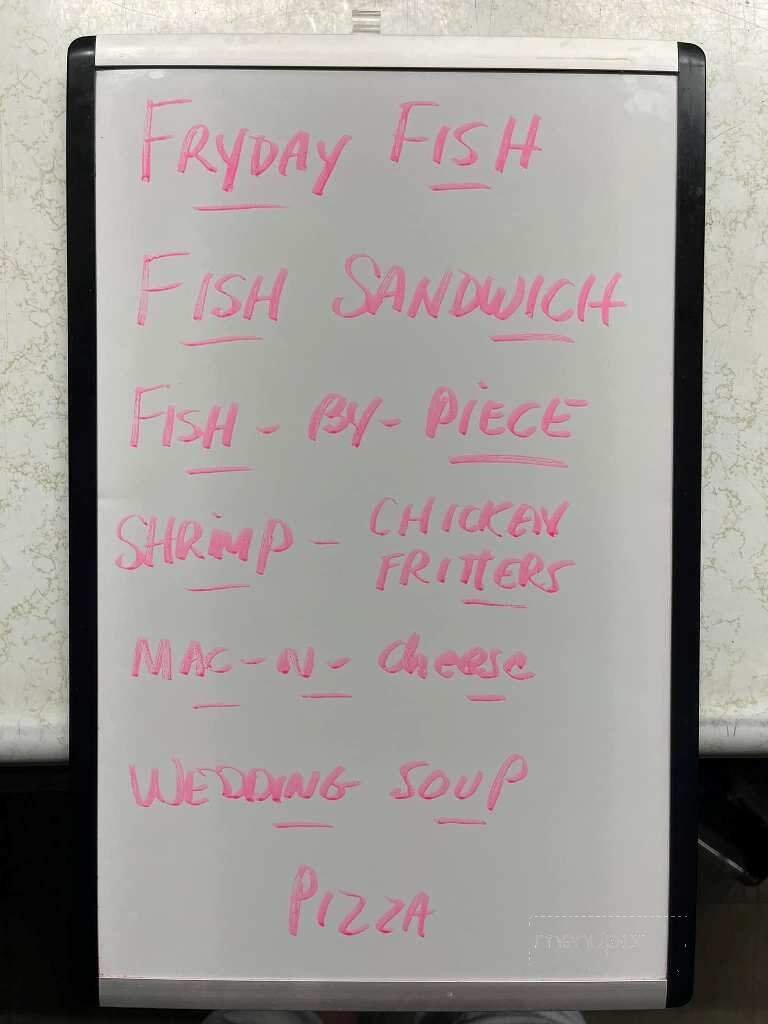 FRYDAY FISH
FISH SANDWICH
FISH - BY - PIECE
SHRIMP - CHICKEN
FRITTERS
MAC - N - Cheese
WEDDING SOUP
PIZZA
menupix